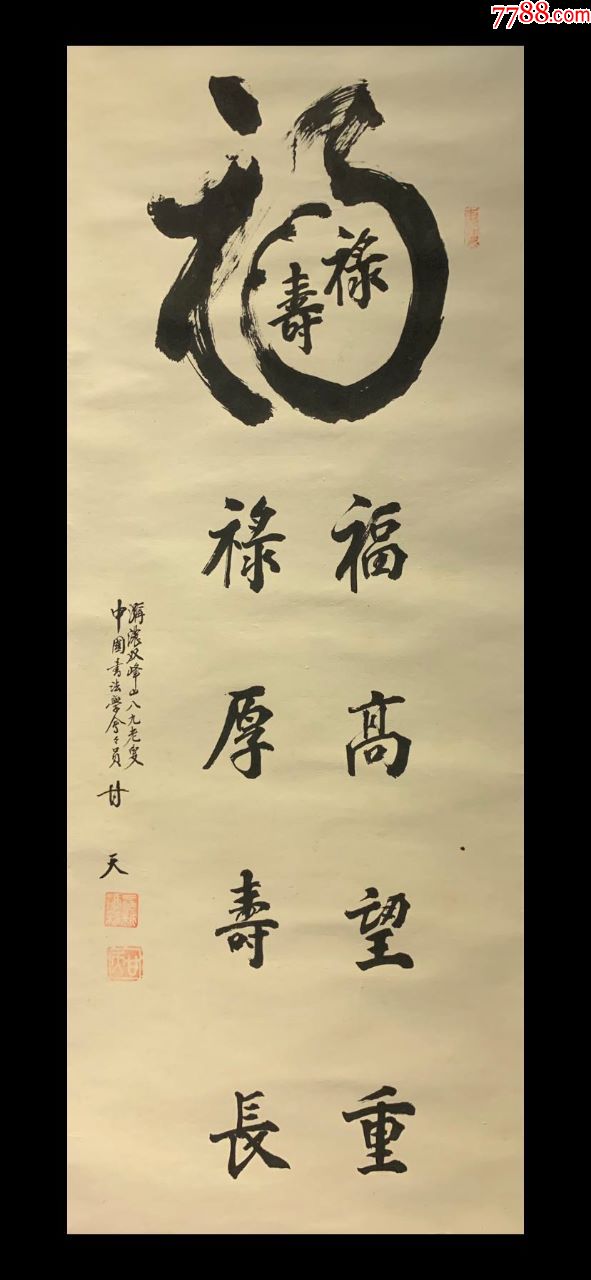 7788.com
福
祿
壽
福高望重
祿厚壽長
双峰山八九老叟
中國書法學會々員
甘天
甘天